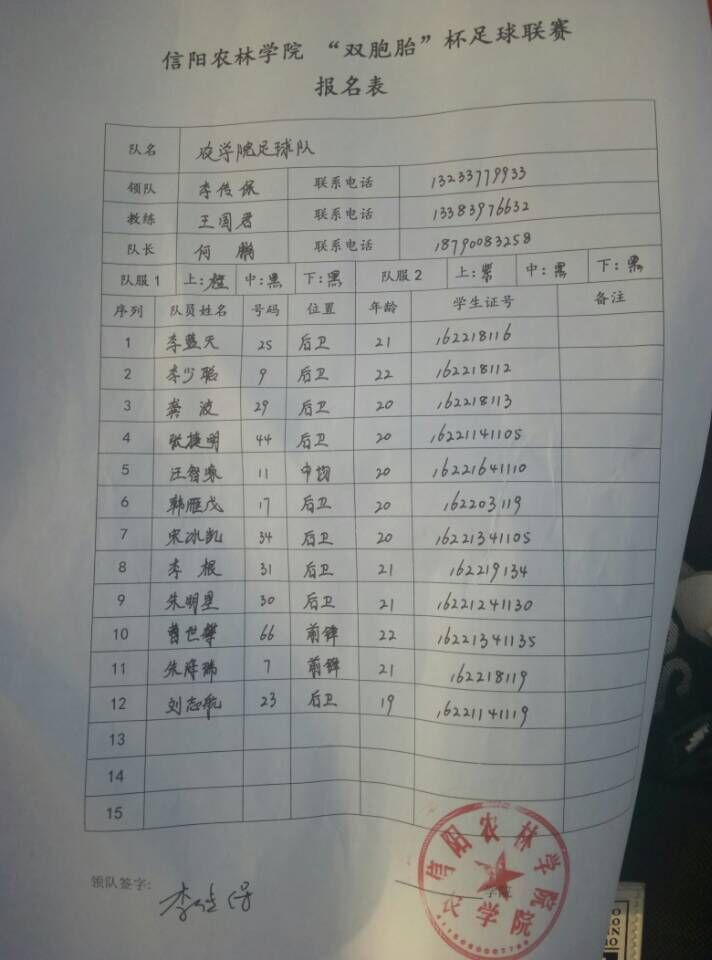 信阳农林学院 “双胞胎”杯足球联赛
报名表
队名 农学院足球队
领队 李传保 联系电话 13233779933
教练 王国君 联系电话 13383976632
队长 何鹏 联系电话 18790083258
队服1 上:橙 中:黑 下:黑 队服2 上:紫 中:黑 下:黑
序列 队员姓名 号码 位置 年龄 学生证号 备注
1 李蓝天 25 后卫 21 162218116
2 李少聪 9 后卫 22 162218112
3 龚波 29 后卫 20 162218113
4 张捷明 44 后卫 20 16221141105
5 汪智 11 中均 20 16221641110
6 韩雁茂 17 后卫 20 162203119
7 宋冰凯 34 后卫 20 16221341105
8 李根 31 后卫 21 162219134
9 朱明星 30 后卫 21 16221241130
10 曹世攀 66 前锋 22 16221341135
11 朱瑞 7 前锋 21 162218119
12 刘志航 23 后卫 19 16221141119
13
14
15
领队签字: 李传保 学院
信阳农林学院
农学院